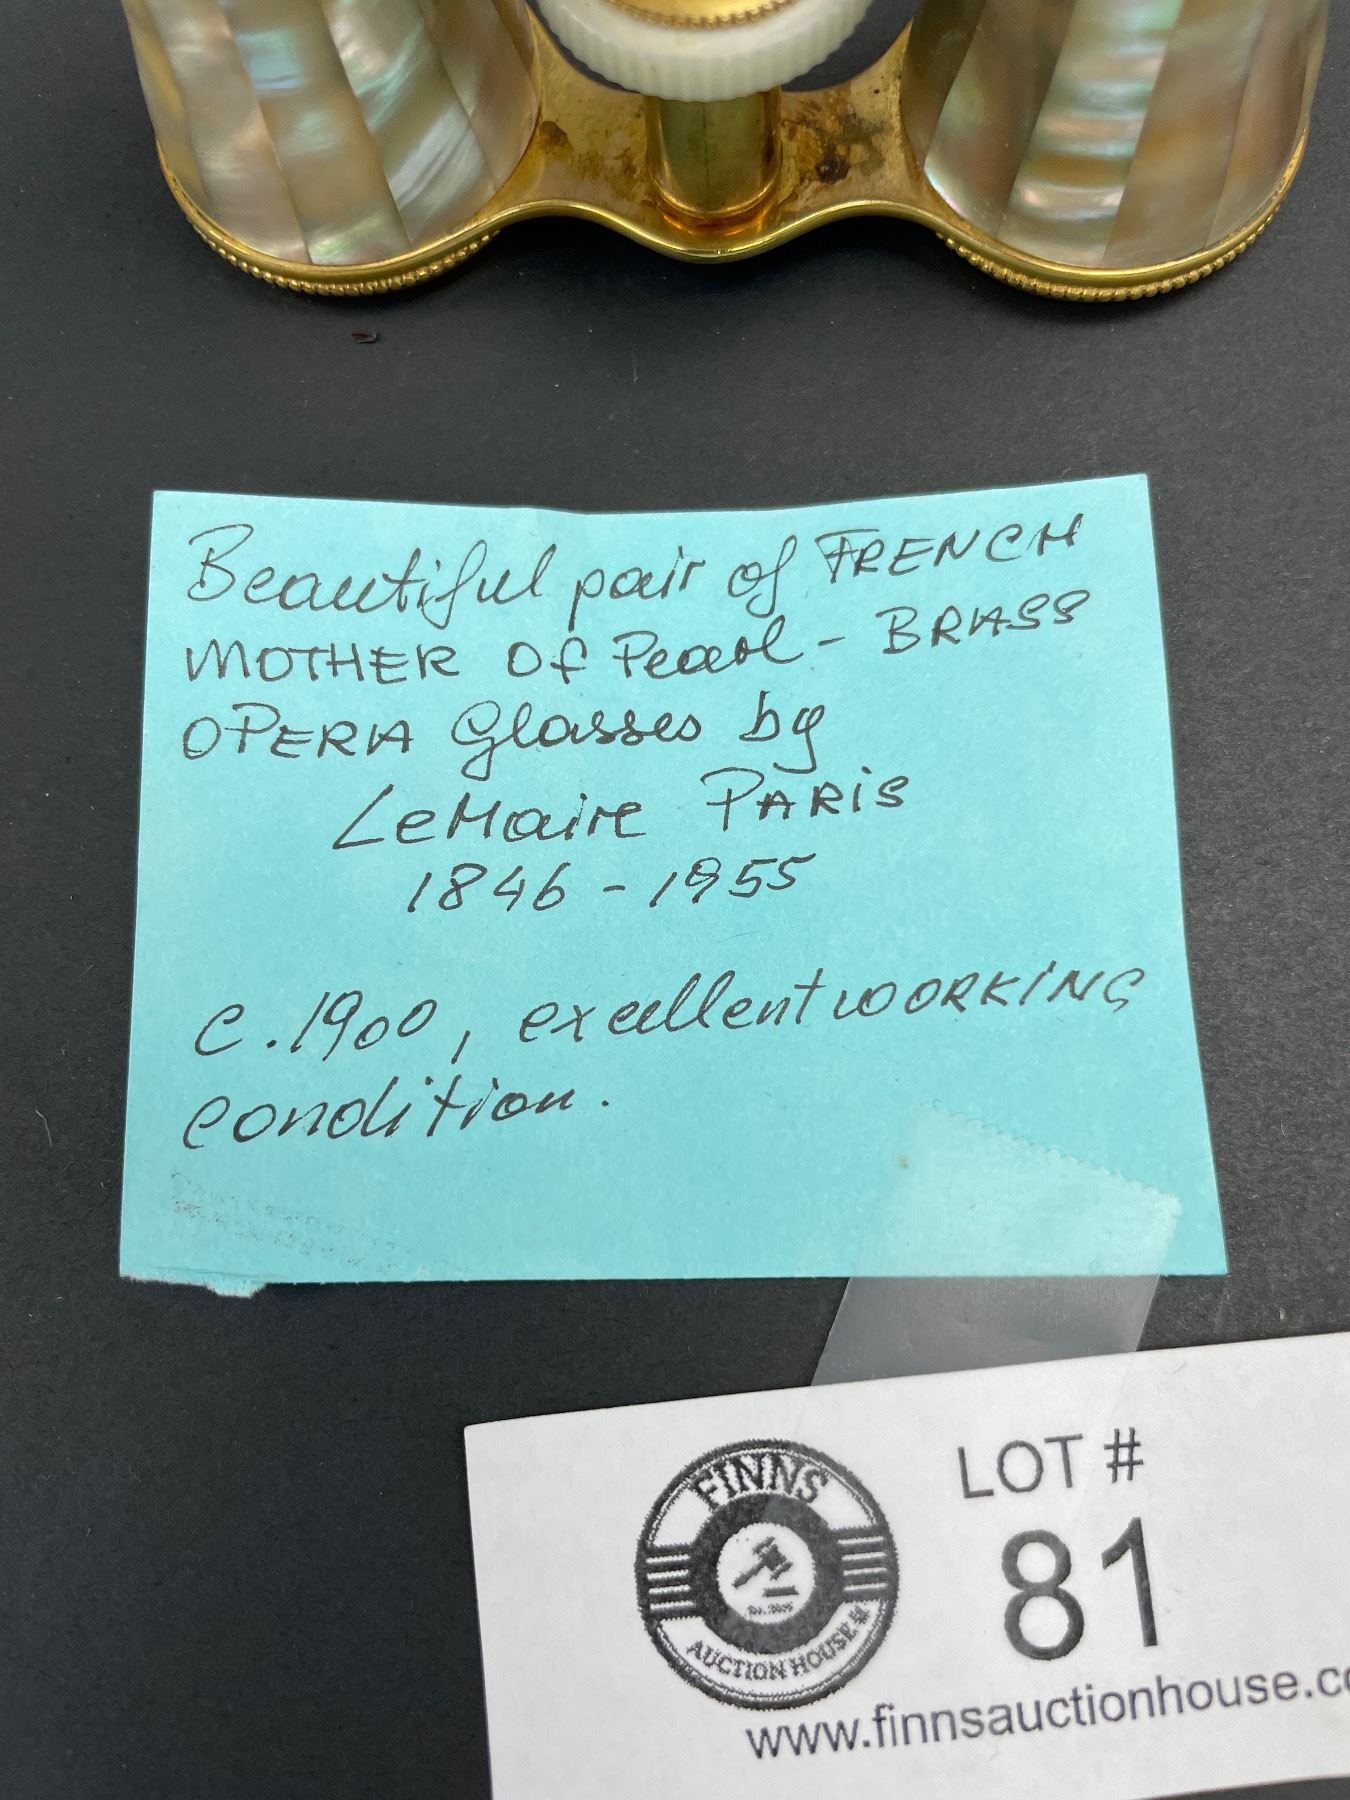 Beautiful pair of FRENCH
MOTHER OF Pearl - BRASS
OPERA Glasses by
LeMaire PARIS
1846 - 1955
c. 1900, excellent WORKING
condition.
FINNS
AUCTION HOUSE
LOT #
81
www.finnsauctionhouse.co